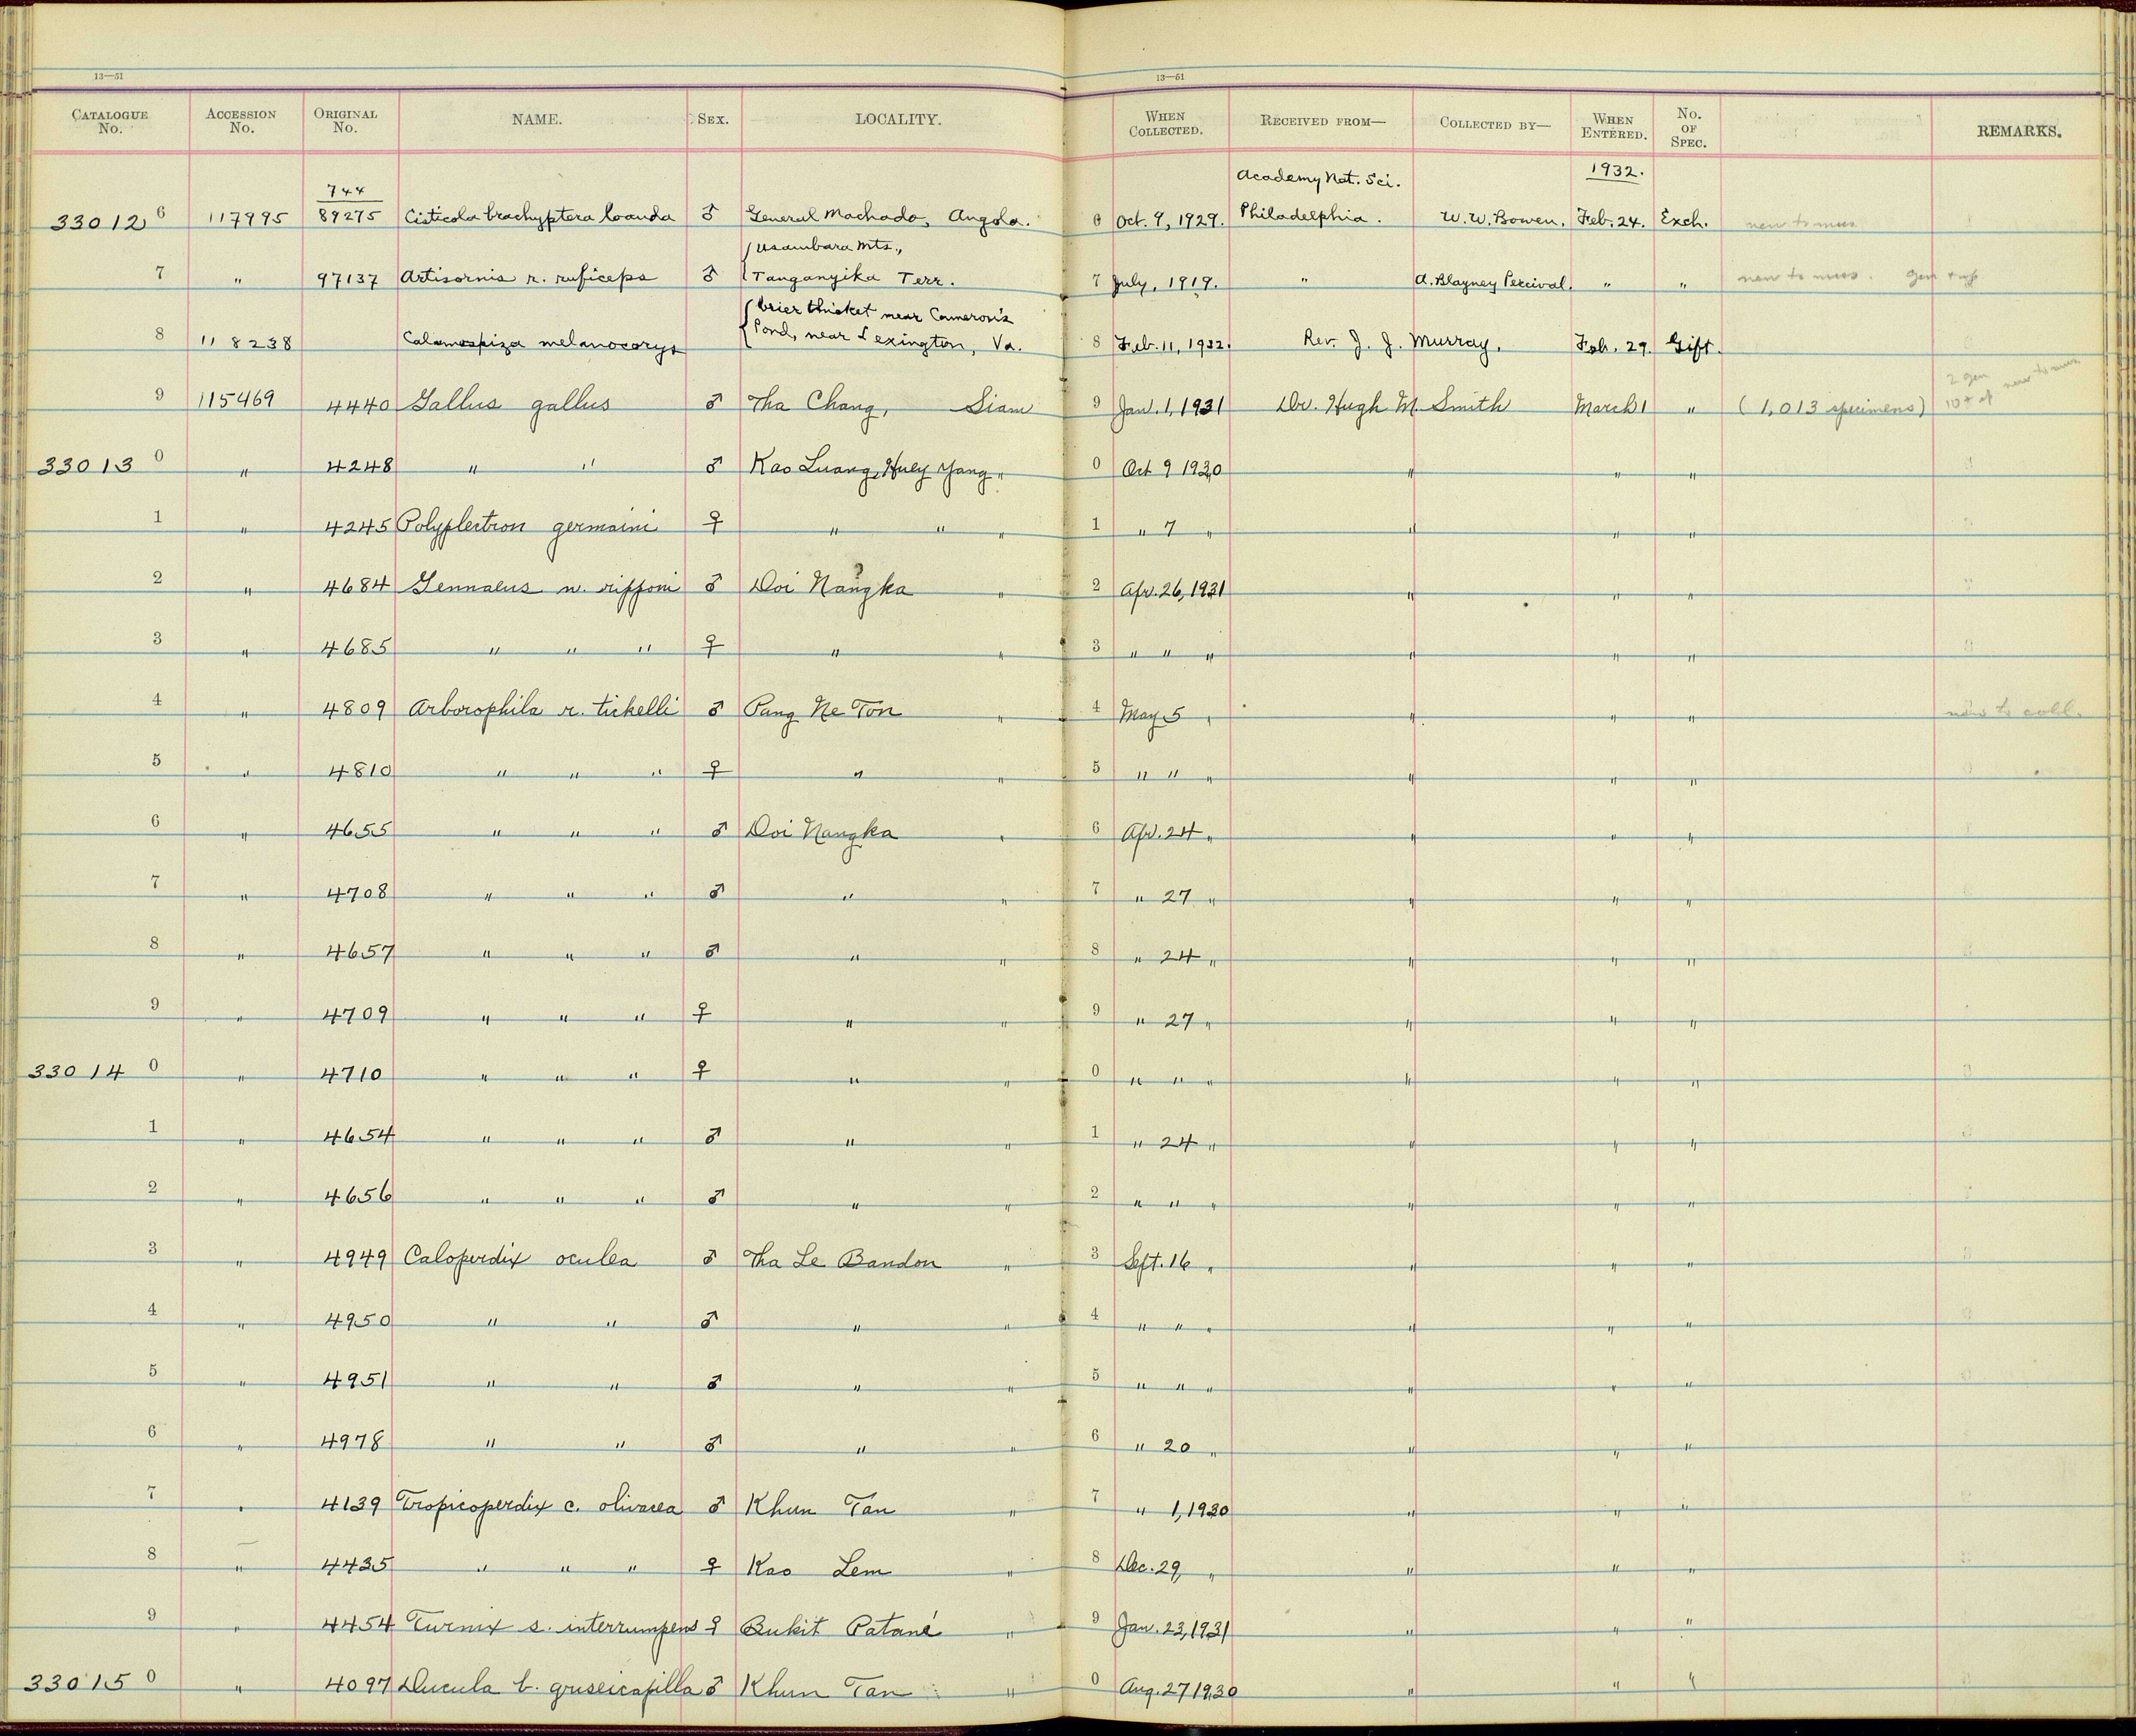 13—51 13—51
CATALOGUE No. ACCESSION No. ORIGINAL No. NAME. SEX. LOCALITY. WHEN COLLECTED. RECEIVED FROM— COLLECTED BY— WHEN ENTERED. No. OF SPEC. REMARKS.
744 Academy Nat. Sci. 1932.
33012 6 117995 89275 Cisticola brachyptera loanda ♂ General Machado, Angola. 6 Oct. 9, 1929. Philadelphia. W. W. Bowen. Feb. 24. Exch. new to mus
Usambara Mts.,
7 " 97137 Artisornis r. ruficeps ♂ Tanganyika Terr. 7 July, 1919. " A. Blayney Percival. " " new to mus. gen
brier thicket near Cameron's
8 118238 Calamospiza melanocorys Pond, near Lexington, Va. 8 Feb. 11, 1932. Rev. J. J. Murray. Feb. 29. Gift.
9 115469 4440 Gallus gallus ♂ Tha Chang, Siam 9 Jan. 1, 1931 Dr. Hugh M. Smith March 1 " (1,013 specimens) 2 gen new to mus
33013 0 " 4248 " " ♂ Kao Luang, Huey Yang " 0 Oct 9 1930 " " "
1 " 4245 Polyplectron germaini ♀ " " " 1 " 7 " " " "
2 " 4684 Gennaeus n. ripponi ♂ Doi Nangka ? " 2 Apr. 26, 1931 " " "
3 " 4685 " " " ♀ " " 3 " " " " " "
4 " 4809 Arborophila r. tickelli ♂ Pang Ne Ton " 4 May 5 " " " " new to coll.
5 " 4810 " " " ♀ " " 5 " " " " " "
6 " 4655 " " " ♂ Doi Nangka " 6 Apr. 24 " " " "
7 " 4708 " " " ♂ " " 7 " 27 " " " "
8 " 4657 " " " ♂ " " 8 " 24 " " " "
9 " 4709 " " " ♀ " " 9 " 27 " " " "
33014 0 " 4710 " " " ♀ " " 0 " " " " " "
1 " 4654 " " " ♂ " " 1 " 24 " " " "
2 " 4656 " " " ♂ " " 2 " " " " " "
3 " 4949 Caloperdix oculea ♂ Tha Le Bandon " 3 Sept. 16 " " " "
4 " 4950 " " ♂ " " 4 " " " " " "
5 " 4951 " " ♂ " " 5 " " " " " "
6 " 4978 " " ♂ " " 6 " 20 " " " "
7 " 4139 Tropicoperdix c. olivacea ♂ Khun Tan " 7 " 1, 1930 " " "
8 " 4435 " " " ♀ Kao Lem " 8 Dec. 29, " " " "
9 " 4454 Turnix s. interrumpens ♀ Bukit Patané " 9 Jan. 23, 1931 " " "
33015 0 " 4097 Ducula b. griseicapilla ♂ Khun Tan " 0 Aug. 27 1930 " " "